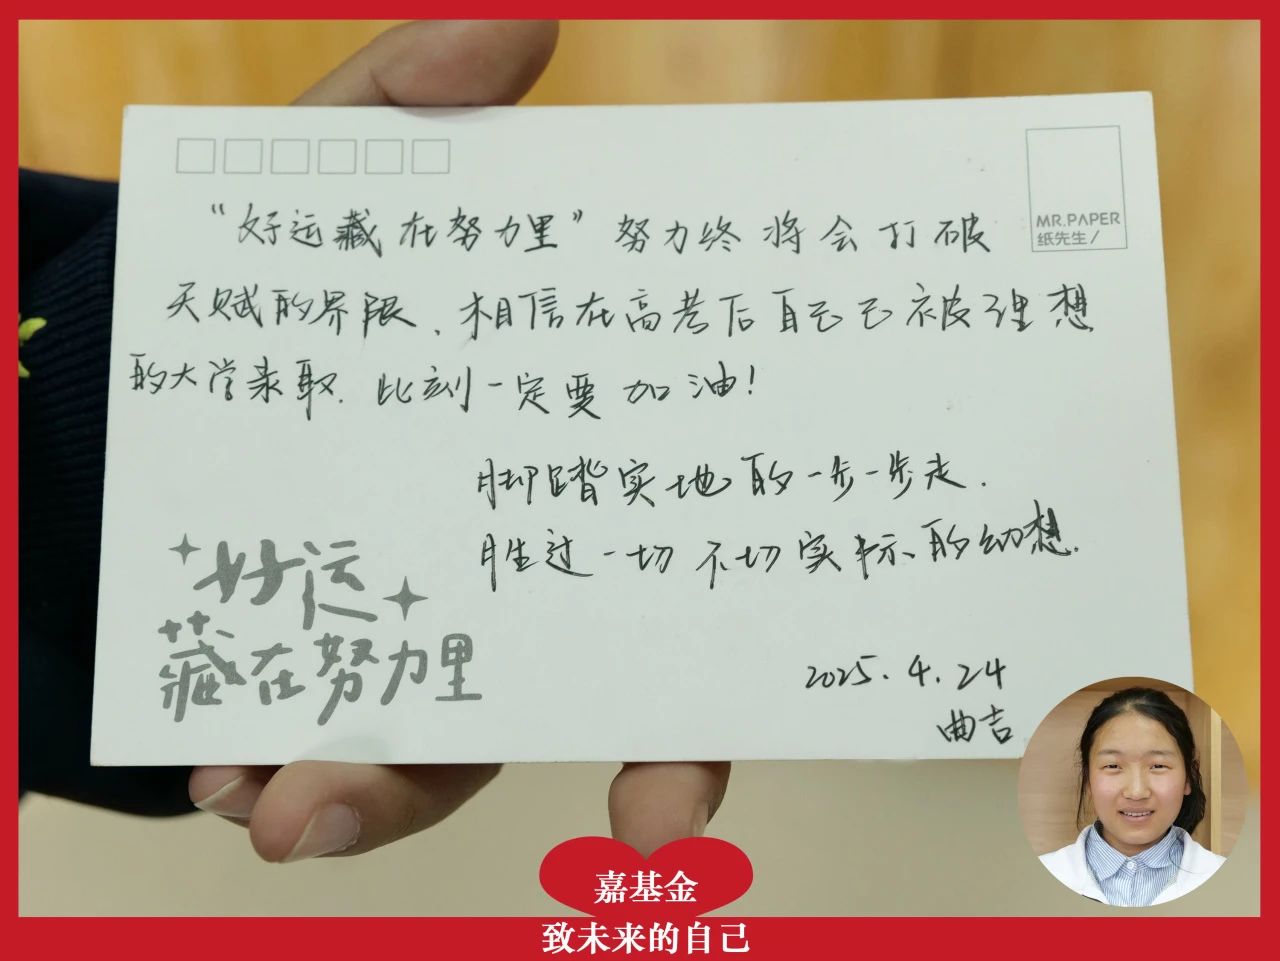 “好运藏在努力里”努力终将会打破
天赋的界限、相信在高考后自己已被理想
的大学录取.此刻一定要加油!
脚踏实地的一步一步走.
胜过一切不切实际的幻想.
2025.4.24
曲吉
MR.PAPER
纸先生/
好运
藏在努力里
嘉基金
致未来的自己